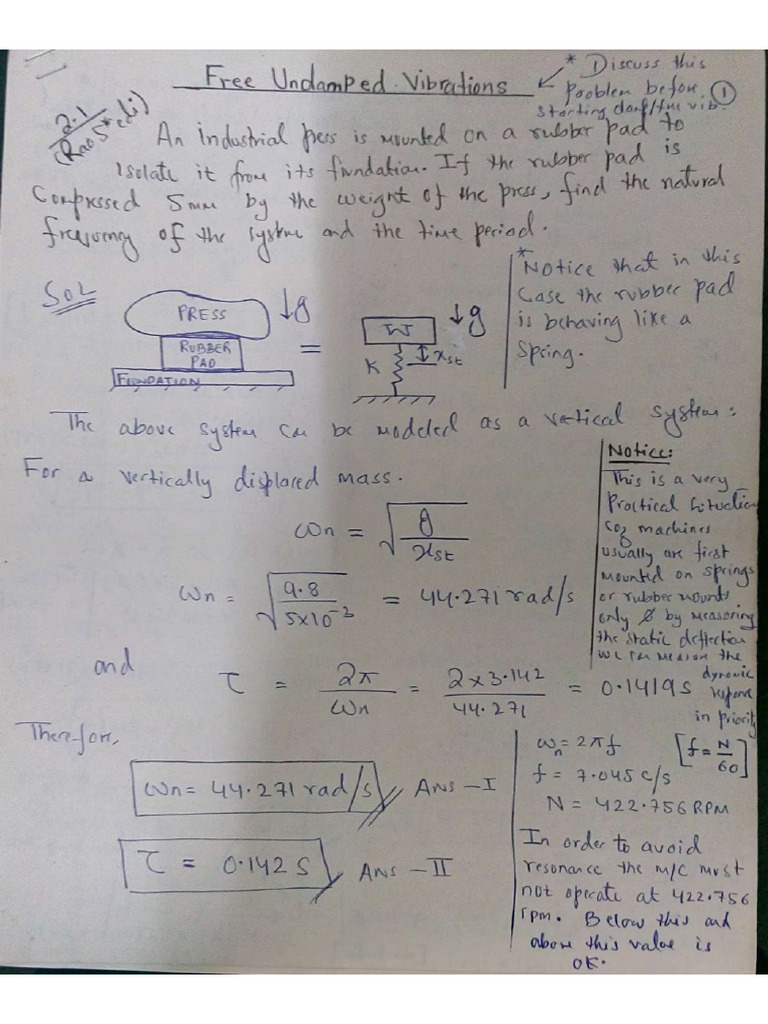 Free Undamped Vibrations
* Discuss this
problem before ①
starting damp/fre vib.
2.1
(Rao 5th edi)
An industrial press is mounted on a rubber pad to
isolate it from its foundation. If the rubber pad is
Compressed 5mm by the weight of the press, find the natural
frequency of the system and the time period.
SOL
PRESS
↓g
RUBBER
PAD
FOUNDATION
=
W
↓g
K
xst
* Notice that in this
Case the rubber pad
is behaving like a
Spring.
The above system can be modeled as a vertical system:
For a vertically displaced mass.
ωn = √(g/xst)
ωn = √(9.8/5x10⁻³) = 44.271 rad/s
Notice:
This is a very
Practical Situation
coz machines
usually are first
mounted on springs
or rubber mounts
only by measuring
the static deflection
we can measure the
dynamic
response
in priority
and
τ = 2π/ωn = 2x3.142/44.271 = 0.1419s
Therefore,
ωn = 44.271 rad/s Ans - I
τ = 0.142 s Ans - II
ωn = 2πf [f = N/60]
f = 7.045 c/s
N = 422.756 RPM
In order to avoid
resonance the m/c must
not operate at 422.756
rpm. Below this and
above this value is
OK.